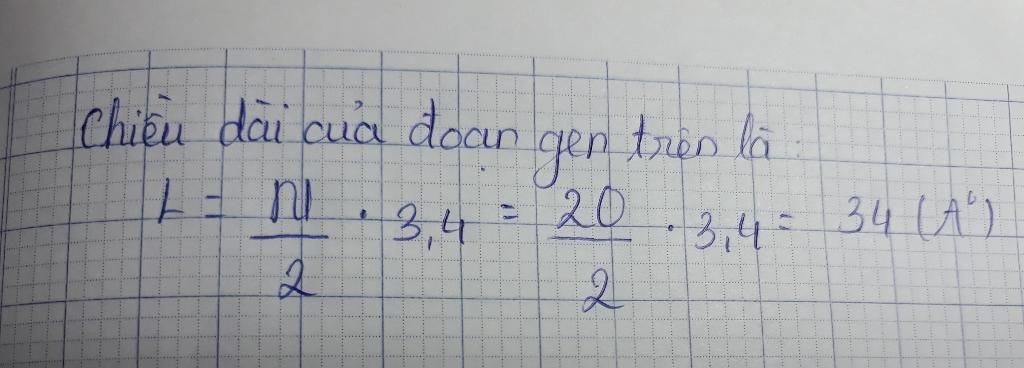 Chiều dài của đoạn gen trên là:
L = N/2 . 3,4 = 20/2 . 3,4 = 34 (A°)